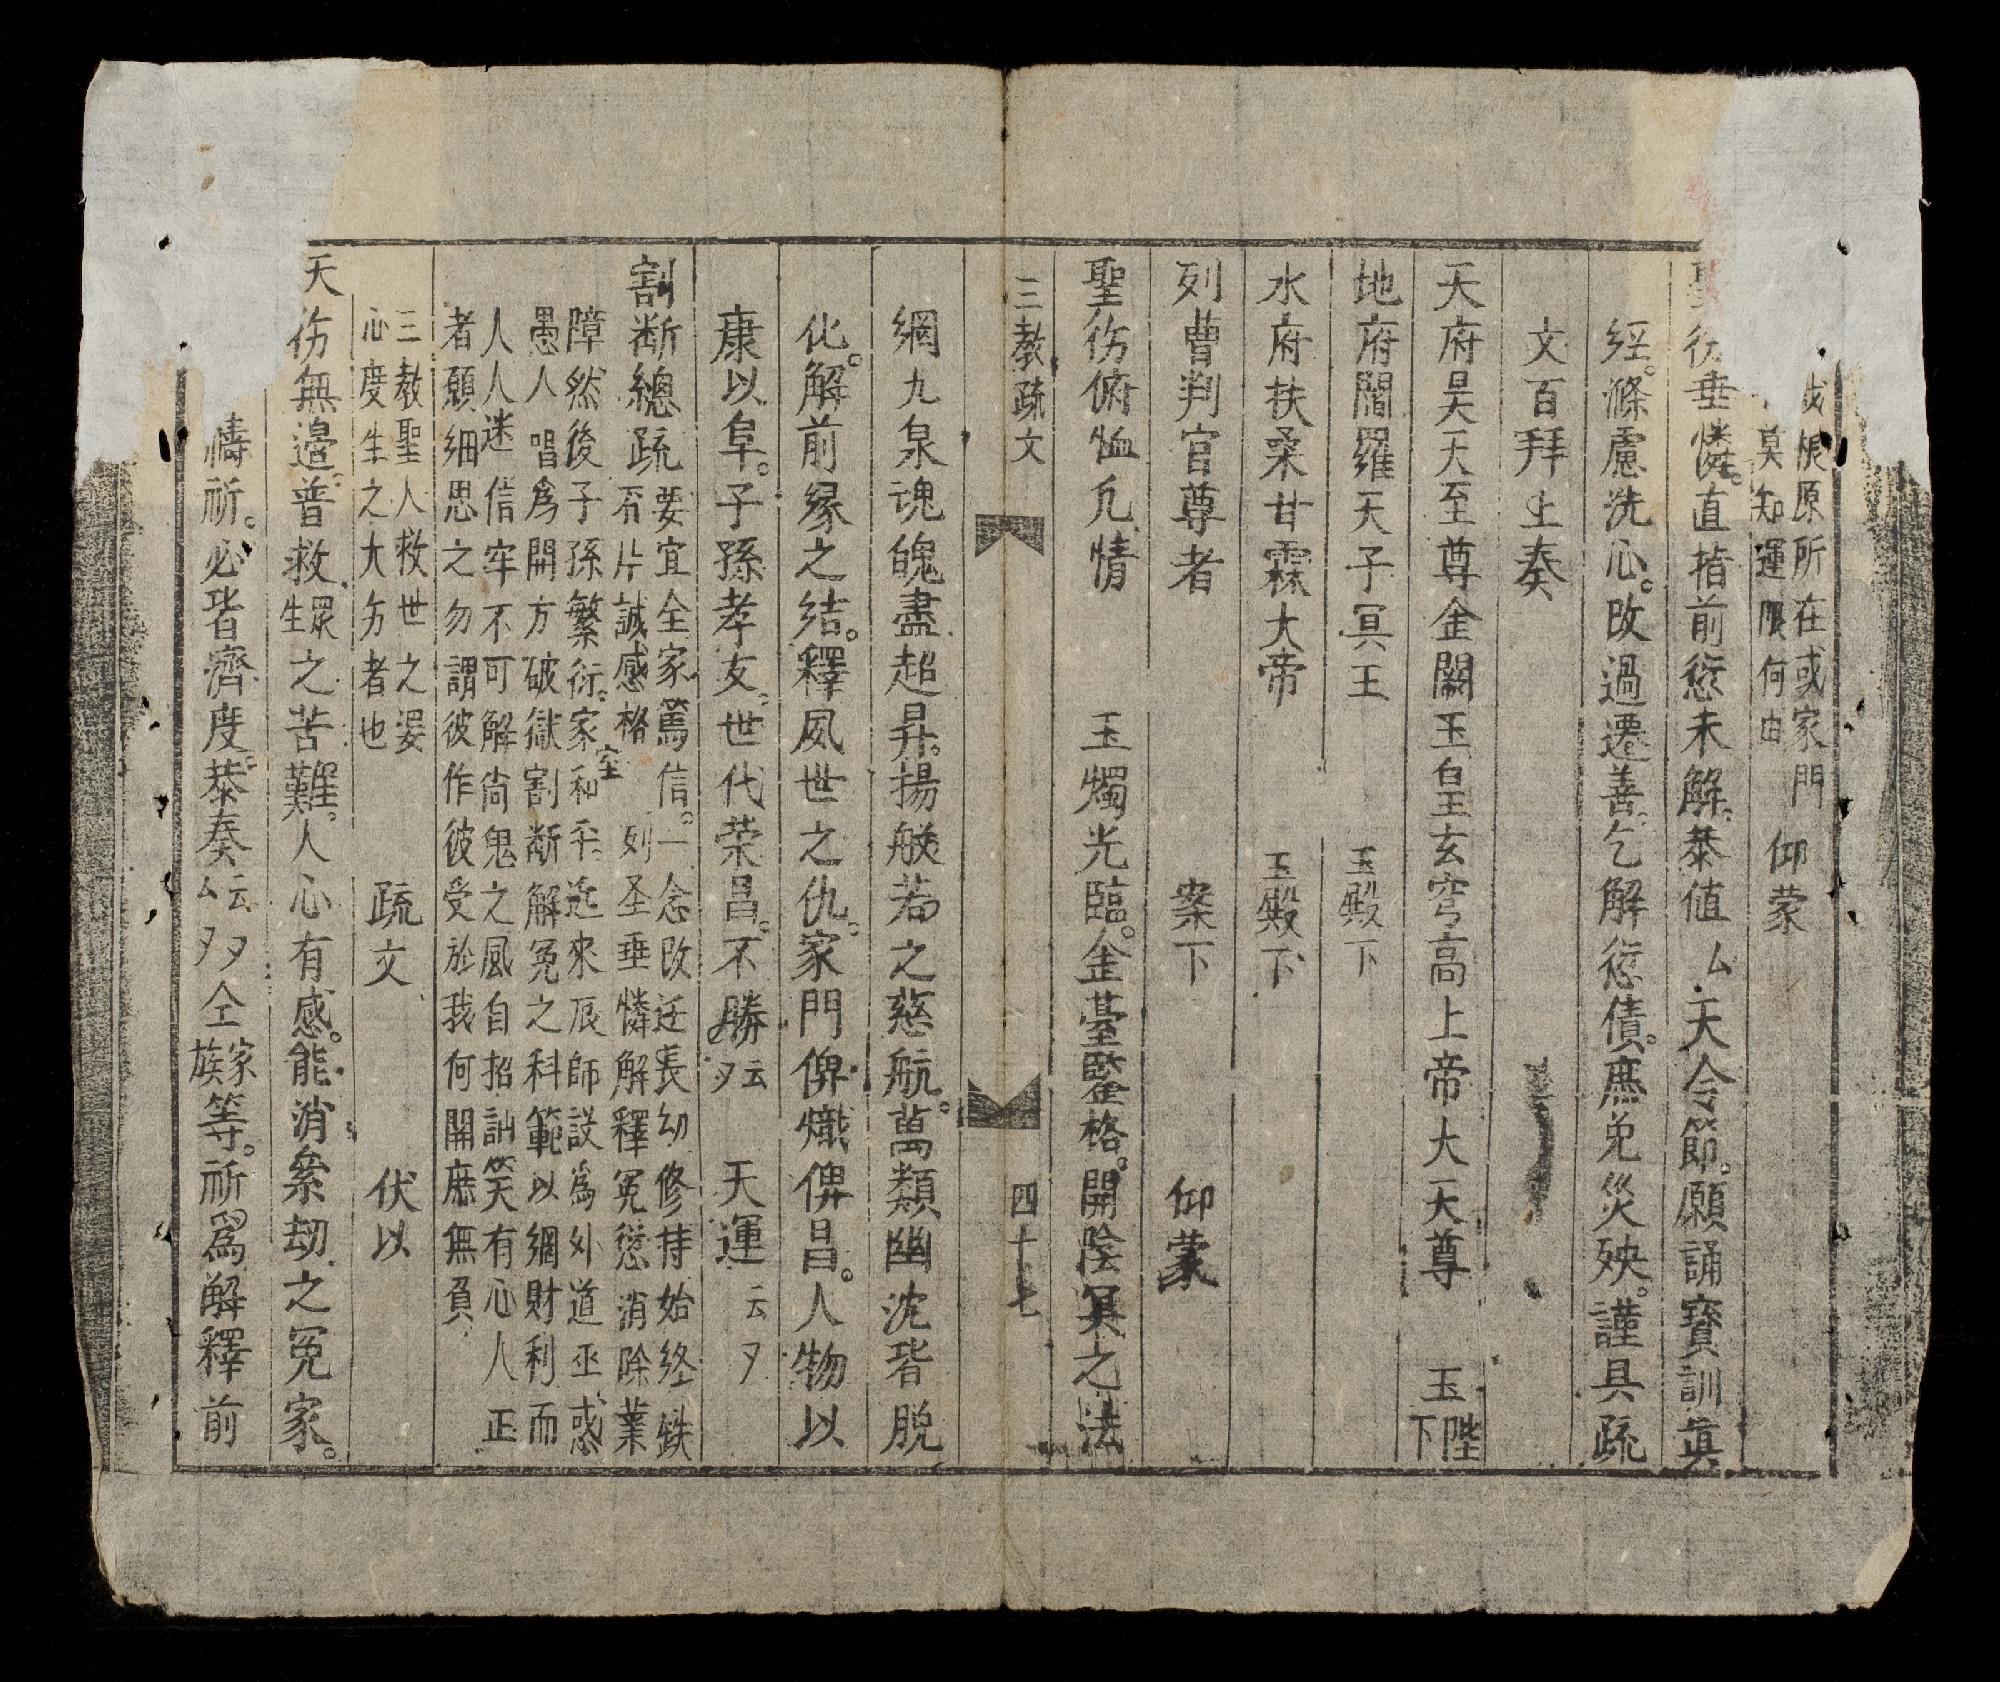 悵原所在或家門
莫知運限何由　仰蒙
垂憐。直指前愆未解。恭值厶天令節。願誦寶訓真
經。滌慮洗心。改過遷善。乞解愆債。庶免災殃。謹具疏
文百拜上奏
天府昊天至尊金闕玉皇玄穹高上帝大天尊　玉陛下
地府閻羅天子冥王　玉殿下
水府扶桑甘霖大帝　玉殿下
列曹判官尊者　案下　仰蒙
聖㑂俯恤凡情　玉燭光臨。金臺鑒格。開陰冥之法
三教疏文　四十七
網九泉魂魄盡超昇。揚般若之慈航。萬類幽沈皆脱
化。解前緣之結。釋夙世之仇。家門俾熾俾昌。人物以
康以阜。子孫孝友。世代荣昌。不勝云夕　天運云夕
割斷總疏
要宜全家篤信。一念改迁長幼修持始终
片誠感格　列圣垂憐解釋冤愆消除業
障然後子孫繁衍。家室和平。近來辰師設爲外道巫惑
愚人唱爲開方破獄割斷解冤之科範以網財利而
人人迷信牢不可解尚鬼之風自招訕笑有心人正
者願細思之勿謂彼作彼受於我何開庶無負
三教聖人救世之婆
心度生之大方者也　疏文　伏以
天㑂無邊。普救眾生之苦難。人心有感。能消累劫之冤家。
禱祈。必皆濟度。恭奏厶云夕夕仝家族等。祈爲解釋前